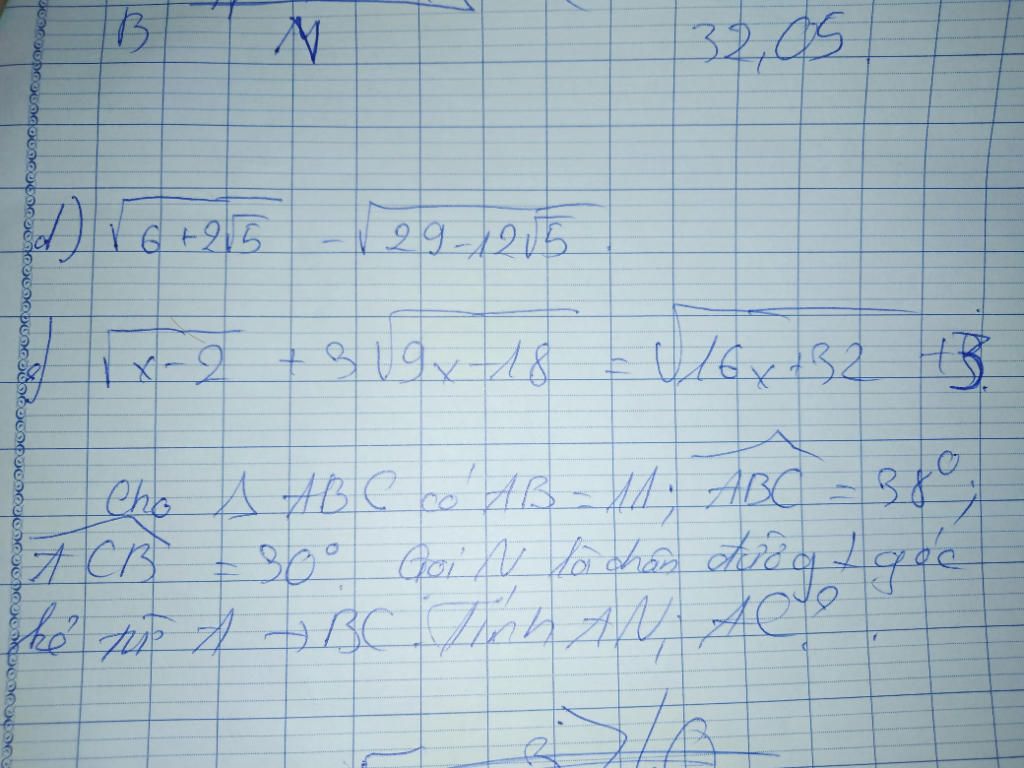 B N 32,05
d) √(6+2√5) - √(29-12√5).
√(x-2) + 3√(9x-18) = √(16x+32) + 3.
Cho Δ ABC có AB = 11; ABC = 38⁰;
ACB = 30⁰. Gọi N là chân đường ⊥ góc
kẻ từ A → BC. Tính AN; AC?